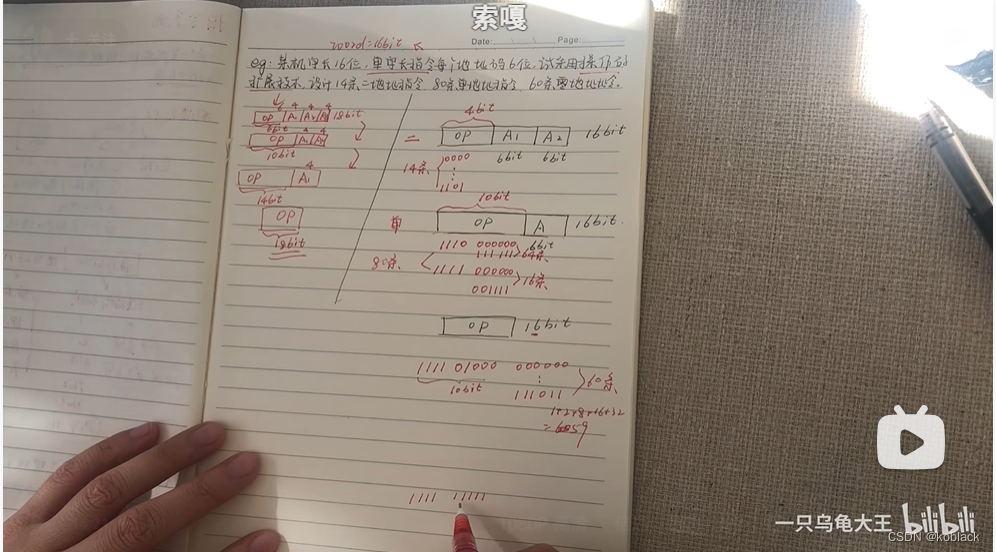 索嘎
word=16bit
Date: Page:
eg: 某机字长16位,单字长指令每个地址码6位,试采用操作码
扩展技术,设计14条二地址指令,80条单地址指令,60条零地址指令.
4 4 4
OP A₁ A₂ A₃ 18bit
OP A₁ A₂
10bit
4
OP A₁
14bit
OP
18bit
4bit
二 OP A₁ A₂ 16bit
6bit 6bit
14条 0000
⋮
1101
10bit
单 OP A 16bit.
6bit
80条 1110 000000
111111 64条
1111 000000
001111 16条
OP 16bit
1111 01000 000000
10bit ⋮ 60条
111011
1+2+8+16+32
=59
1111 11111
一只乌龟大王 bilibili
CSDN @koblack